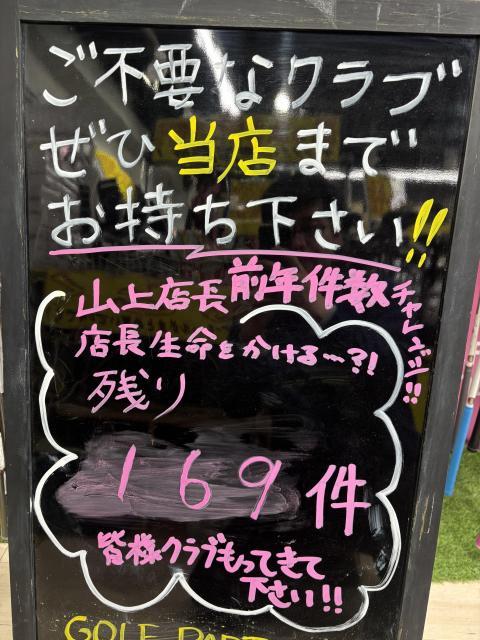 ご不要なクラブ
ぜひ当店まで
お持ち下さい!!
山上店長前年件数チャレンジ!!
店長生命をかける…?!
残り
169件
皆様クラブもってきて
下さい!!
GOLF PART